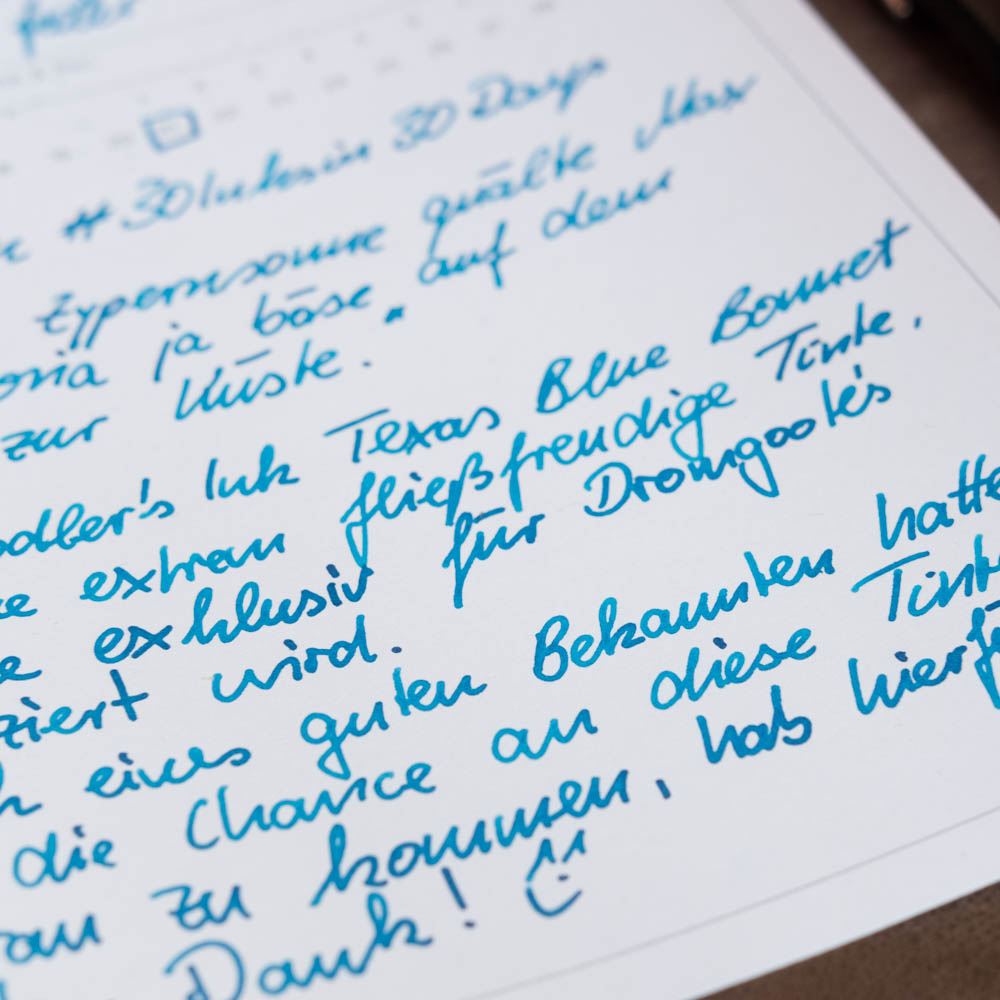 # 30 Inks in 30 Days
Zypernsonne quälte Max
ja böse auf dem
zur Küste."
Ink Texas Blue Bonnet
extrem fließfreudige Tinte,
exklusiv für Dromgoole's
wird.
eines guten Bekannten hatte
die Chance an diese Tinte
zu kommen, hab hierfür
Dank! :)